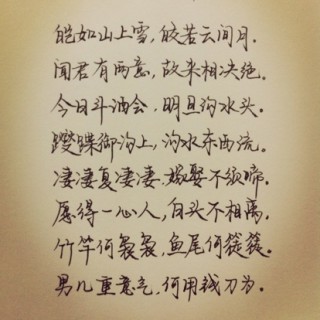 皑如山上雪，皎若云间月．
闻君有两意，故来相决绝．
今日斗酒会，明旦沟水头．
蹀躞御沟上，沟水东西流．
凄凄复凄凄，嫁娶不须啼．
愿得一心人，白头不相离．
竹竿何袅袅，鱼尾何簁簁．
男儿重意气，何用钱刀为．